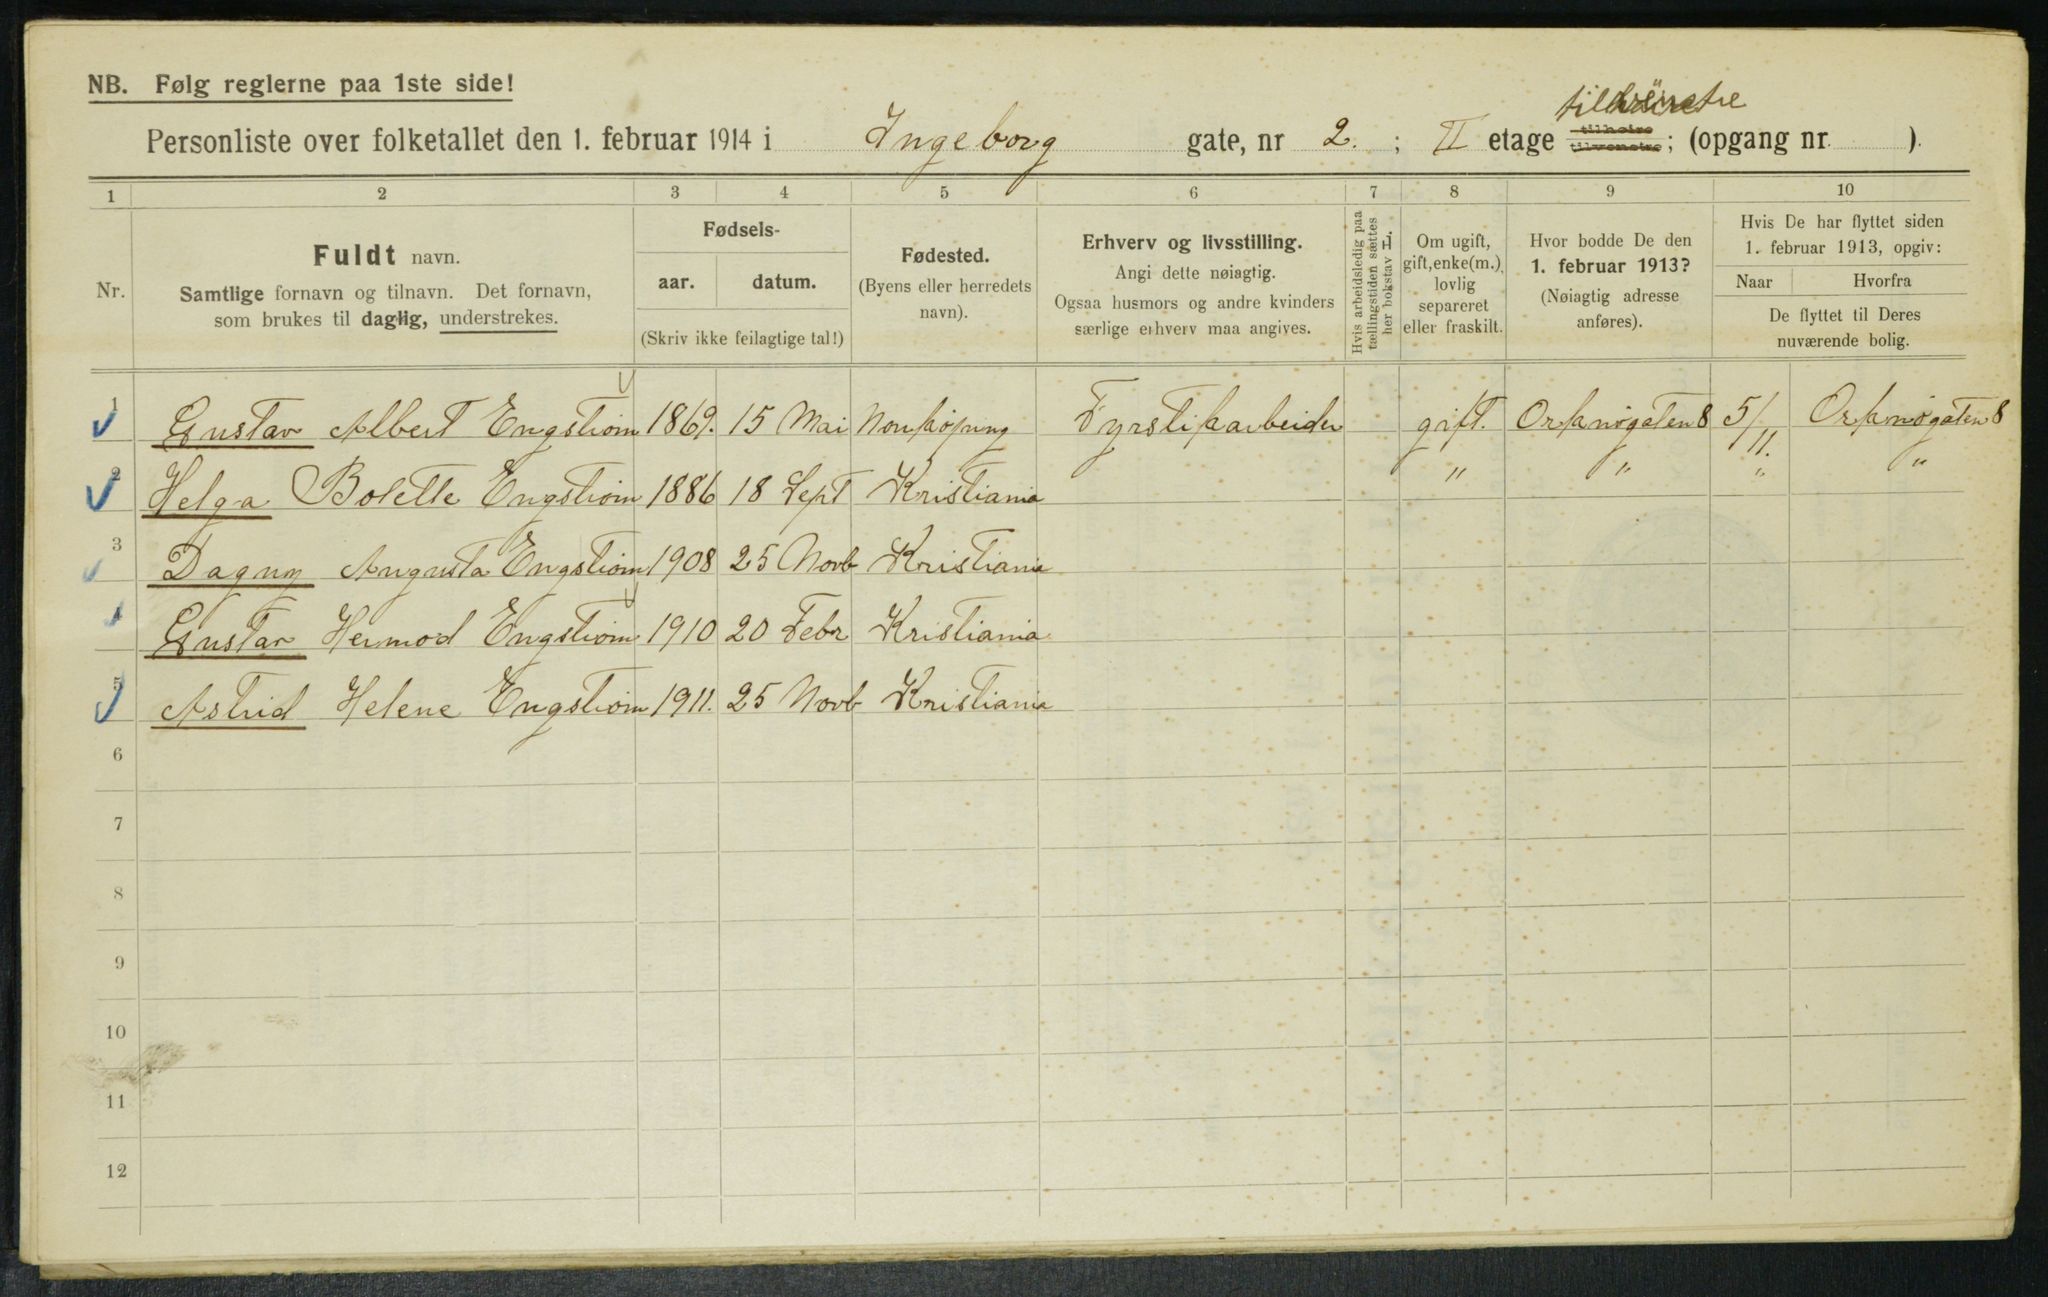 NB. Følg reglerne paa 1ste side!
Personliste over folketallet den 1. februar 1914 i Ingeborg gate, nr 2. ; II etage tilhøire tilvenstre ; (opgang nr. ).
1 2 3 4 5 6 7 8 9 10
Nr.
Fuldt navn.
Samtlige fornavn og tilnavn. Det fornavn,
som brukes til daglig, understrekes.
Fødsels-
aar. datum.
(Skriv ikke feilagtige tal!)
Fødested.
(Byens eller herredets
navn).
Erhverv og livsstilling.
Angi dette nøiagtig.
Ogsaa husmors og andre kvinders
særlige erhverv maa angives.
Hvis arbeidsledig paa
tællingstiden sættes
her bokstav L.
Om ugift,
gift, enke(m.),
lovlig
separeret
eller fraskilt.
Hvor bodde De den
1. februar 1913?
(Nøiagtig adresse
anføres).
Hvis De har flyttet siden
1. februar 1913, opgiv:
Naar Hvorfra
De flyttet til Deres
nuværende bolig.
1 Gustav Albert Engstrøm 1869. 15 Mai Norrkøping Fyrstikarbeider gift. Orknøgaten 8 5/11. Orknøgaten 8
2 Helga Bolette Engstrøm 1886 18 Sept Kristiania " " " "
3 Dagny Augusta Engstrøm 1908 25 Novb Kristiania
4 Gustav Hermod Engstrøm 1910 20 Febr Kristiania
5 Astrid Helene Engstrøm 1911. 25 Novb Kristiania
6
7
8
9
10
11
12